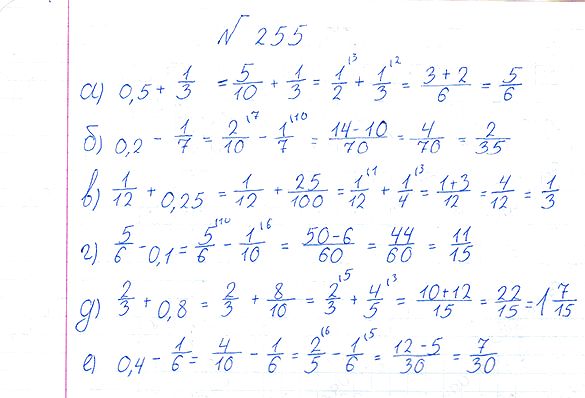 № 255
а) 0,5 + 1/3 = 5/10 + 1/3 = 1/2 ⁽³ + 1/3 ⁽² = (3+2)/6 = 5/6
б) 0,2 - 1/7 = 2/10 ⁽⁷ - 1/7 ⁽¹⁰ = (14-10)/70 = 4/70 = 2/35
в) 1/12 + 0,25 = 1/12 + 25/100 = 1/12 ⁽¹ + 1/4 ⁽³ = (1+3)/12 = 4/12 = 1/3
г) 5/6 - 0,1 = 5/6 ⁽¹⁰ - 1/10 ⁽⁶ = (50-6)/60 = 44/60 = 11/15
д) 2/3 + 0,8 = 2/3 + 8/10 = 2/3 ⁽⁵ + 4/5 ⁽³ = (10+12)/15 = 22/15 = 1 7/15
е) 0,4 - 1/6 = 4/10 - 1/6 = 2/5 ⁽⁶ - 1/6 ⁽⁵ = (12-5)/30 = 7/30